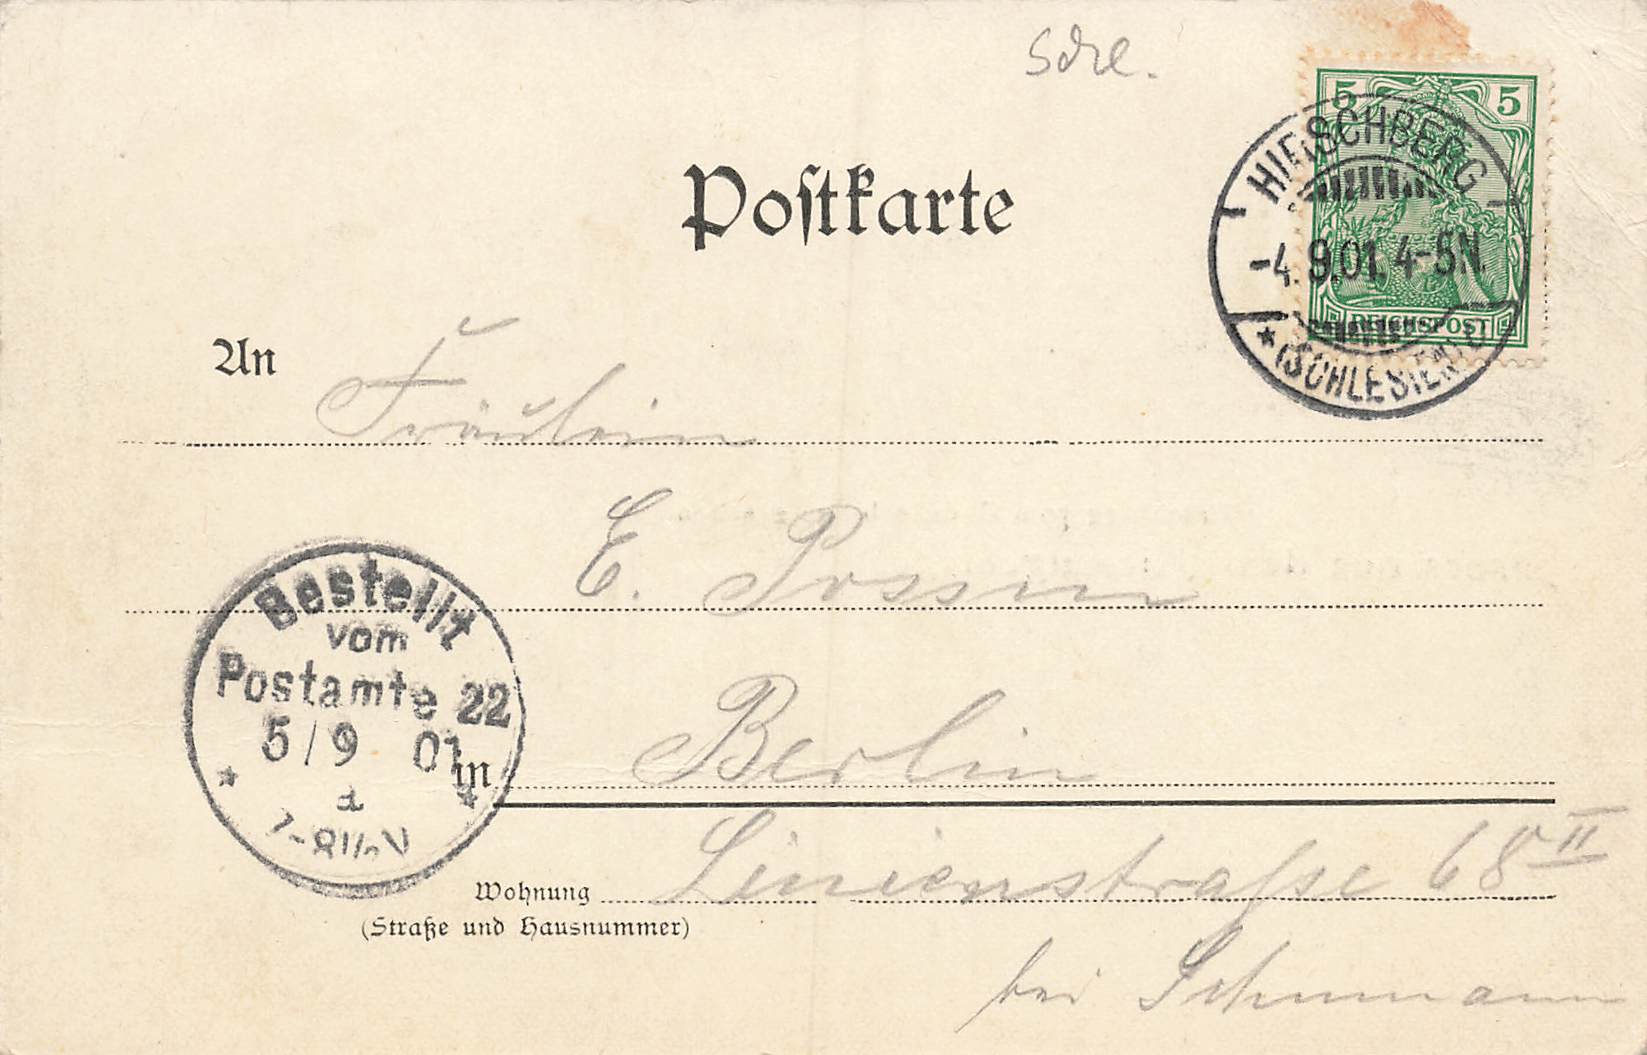 5 5
REICHSPOST
HIRSCHBERG
-4.9.01. 4-5N.
* (SCHLESIEN)
Postkarte
An Fräulein
E. Possin
Bestellt
vom
Postamte 22
5/9 01
*
7-8½V
in Berlin
Wohnung Linienstraße 68 II
(Straße und Hausnummer)
bei Schumann